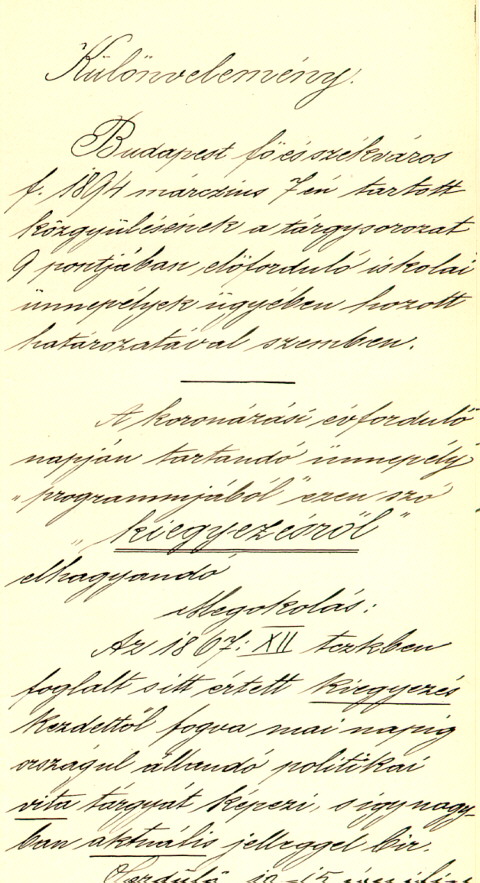 Különvelemény.
Budapest fő és székváros
f. 1894 márczius 7én tartott
közgyülésének a tárgysorozat
9 pontjában előforduló iskolai
ünnepélyek ügyében hozott
határozatával szemben.
A koronázási évforduló
napján tartandó ünnepély
"programmjából" ezen szó
"kiegyezésről"
elhagyandó
Megokolás:
Az 1867: XII tczkben
foglalt s itt értett kiegyezés
kezdettől fogva mai napig
országul állandó politikai
vita tárgyát képezi, s igy nagy-
ban aktuális jelleggel bir.